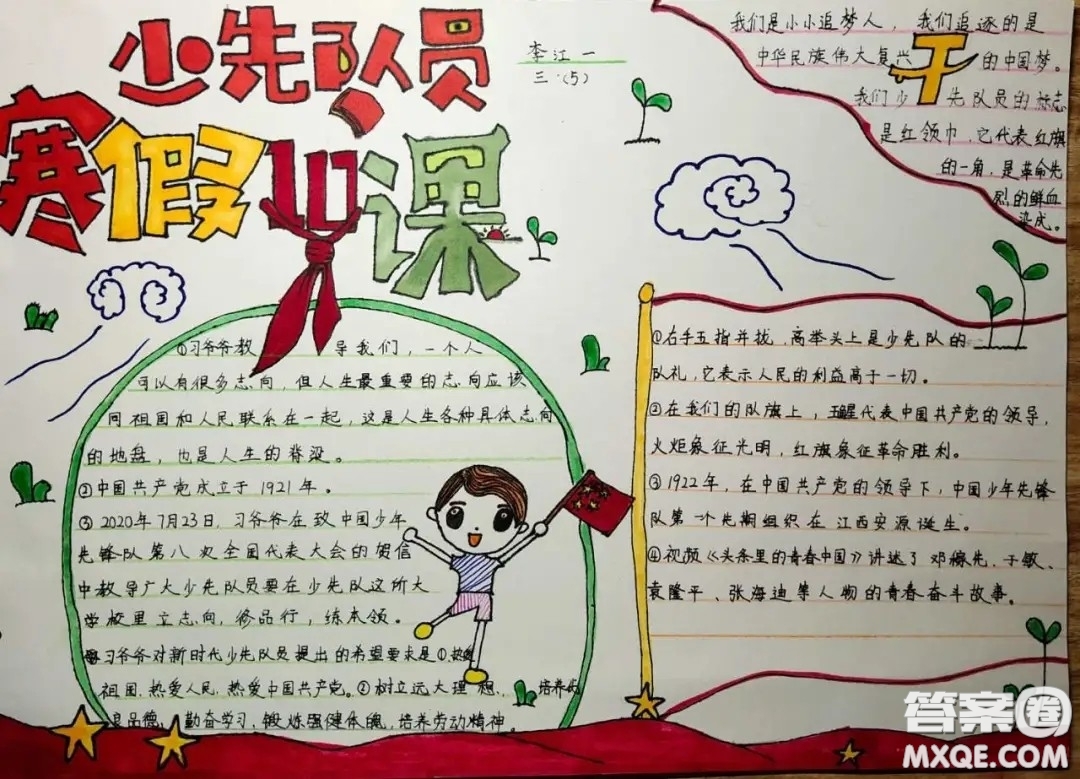 少先队员
寒假十课
李江一
三.(5)
我们是小小追梦人，我们追逐的是
中华民族伟大复兴的中国梦。
我们少先队员的标志
是红领巾，它代表红旗
的一角，是革命先
烈的鲜血
染成。
①习爷爷教导我们，一个人
可以有很多志向，但人生最重要的志向应该
同祖国和人民联系在一起，这是人生各种具体志向
的地盘，也是人生的脊梁。
②中国共产党成立于1921年。
③2020年7月23日，习爷爷在致中国少年
先锋队第八次全国代表大会的贺信
中教导广大少先队员要在少先队这所大
学校里立志向，修品行，练本领。
④习爷爷对新时代少先队员提出的希望要求是①.热爱
祖国.热爱人民.热爱中国共产党。②树立远大理想、培养优
良品德，勤奋学习，锻炼强健体魄，培养劳动精神。
①右手五指并拢，高举头上是少先队的
队礼，它表示人民的利益高于一切。
②在我们的队旗上，五星代表中国共产党的领导，
火炬象征光明，红旗象征革命胜利。
③1922年，在中国共产党的领导下，中国少年先锋
队第一个先期组织在江西安源诞生。
④视频《头条里的青春中国》讲述了邓稼先、于敏、
袁隆平、张海迪等人物的青春奋斗故事。
答案圈
MXQE.COM